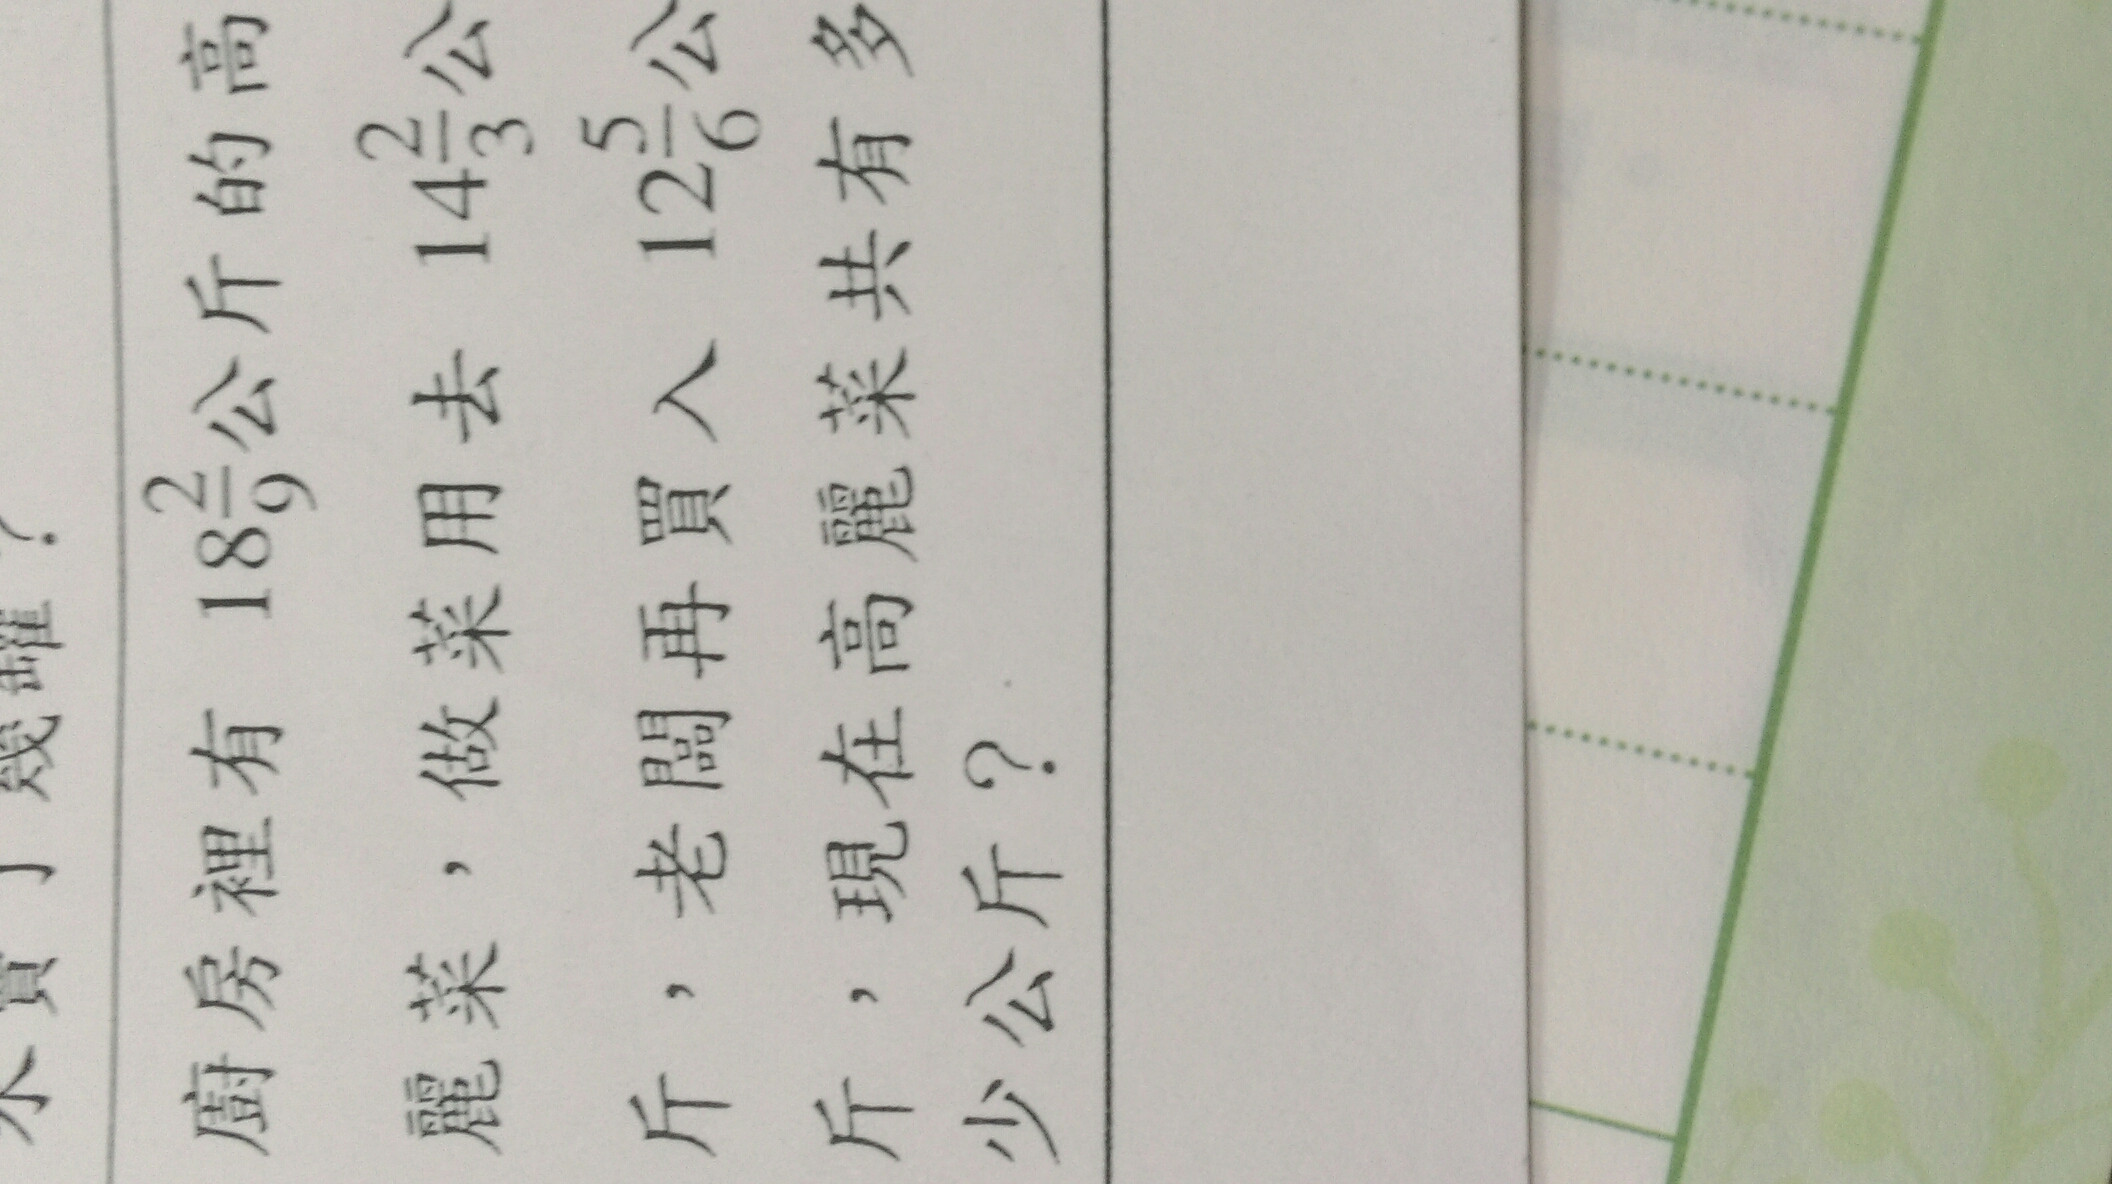 買了幾罐?
廚房裡有 18 2/9 公斤的高
麗菜,做菜用去 14 2/3 公
斤,老闆再買入 12 5/6 公
斤,現在高麗菜共有多
少公斤?